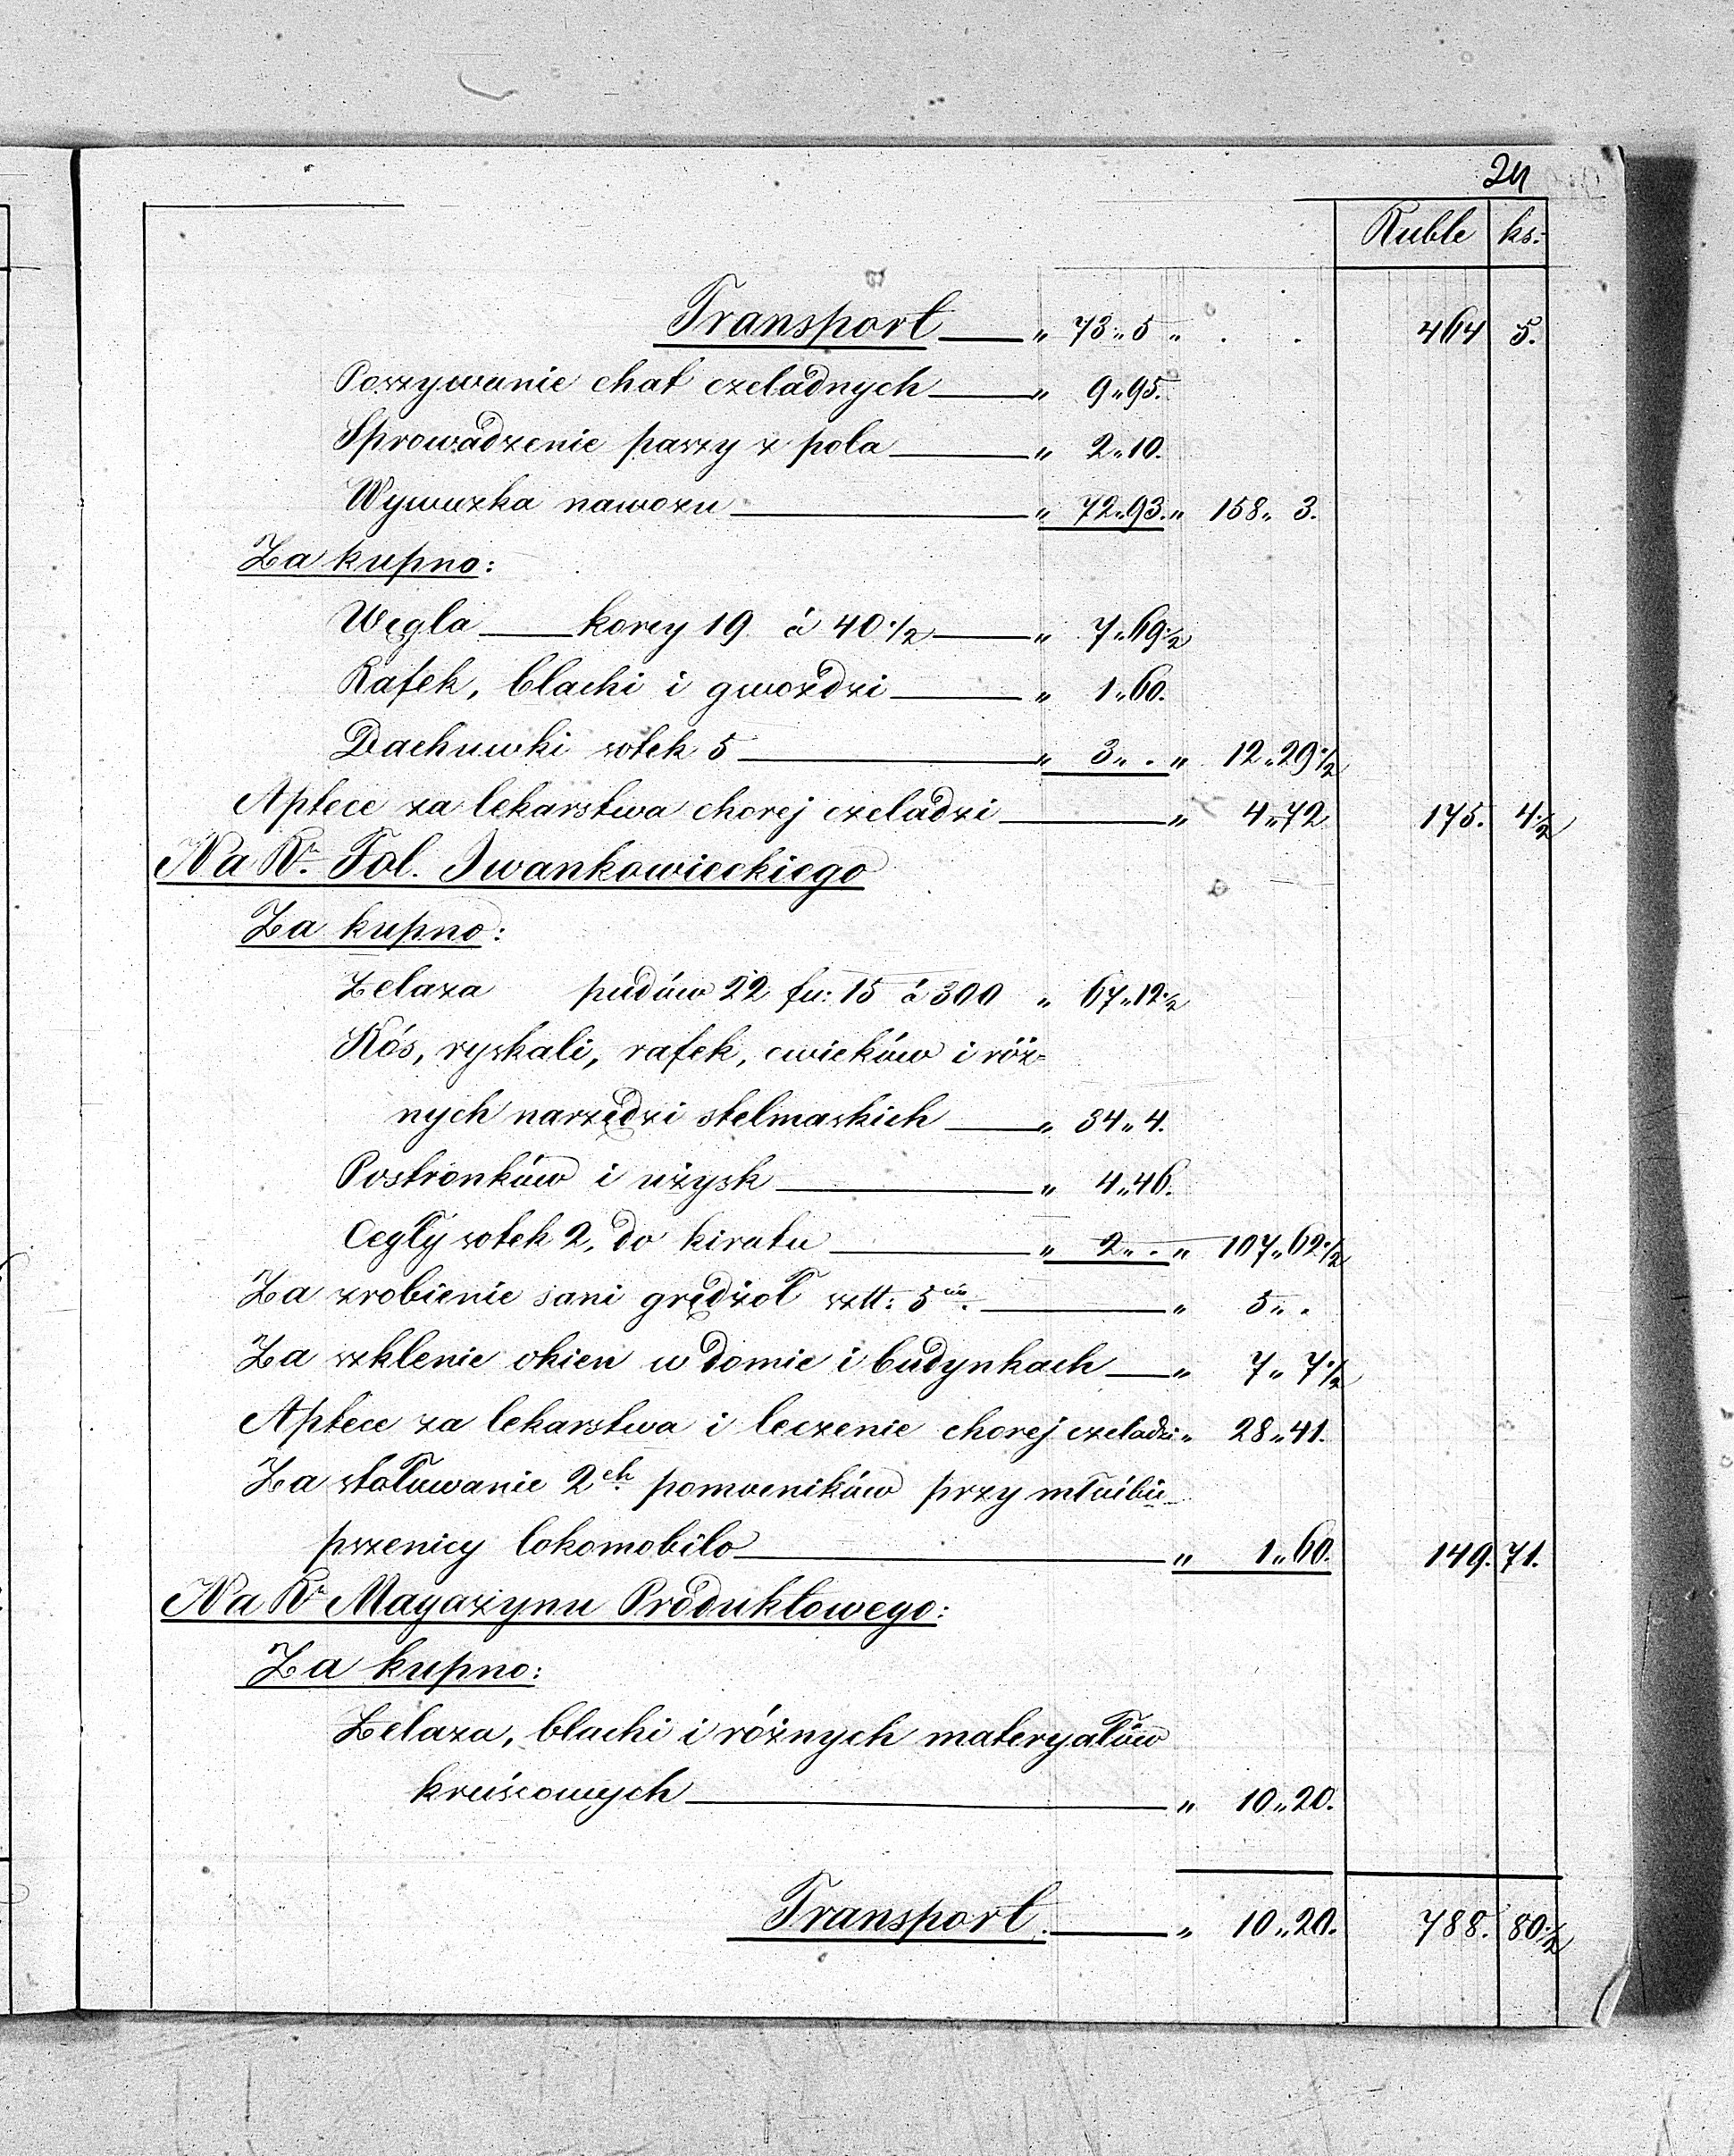 24
Ruble ks:
Transport „ 73„5 „ . . 464 5.
Poszywanie chat czeladnych „ 9„95.
Sprowadzenie paszy z pola „ 2„10.
Wywuzka nawozu „ 72„93.„ 158„ 3.
Za kupno:
Węgla korcy 19 á 40½ „ 7„69½
Rafek, blachi i gwoździ „ 1„60.
Dachuwki sotek 5 „ 3„ . „ 12„29½
Aptece za lekarstwa chorej czeladzi „ 4„72 175. 4½
Na Rn. Fol. Iwankowieckiego
Za kupno:
Żelaza pudów 22 fu: 15 á 300 „ 67„12½
Kós, ryskali, rafek, cwieków i róż=
nych narzędzi stelmaskich „ 34„4.
Postronków i użysk „ 4„46.
Cegły sotek 2, do kiratu „ 2„ . „ 107„62½
Za zrobienie sani grędżoł sztt: 5ciu. „ 5„ .
Za szklenie okien w domie i budynkach „ 7„ 7½
Aptece za lekarstwa i leczenie chorej czeladzi „ 28„41.
Za stołuwanie 2ch. pomocników przy młócbie
pszenicy lokomobilo „ 1„60. 149. 71.
Na Rn Magazynu Produktowego:
Za kupno:
Żelaza, blachi i różnych materyałów
kruścowych „ 10„20.
Transport. „ 10„20. 788. 80½